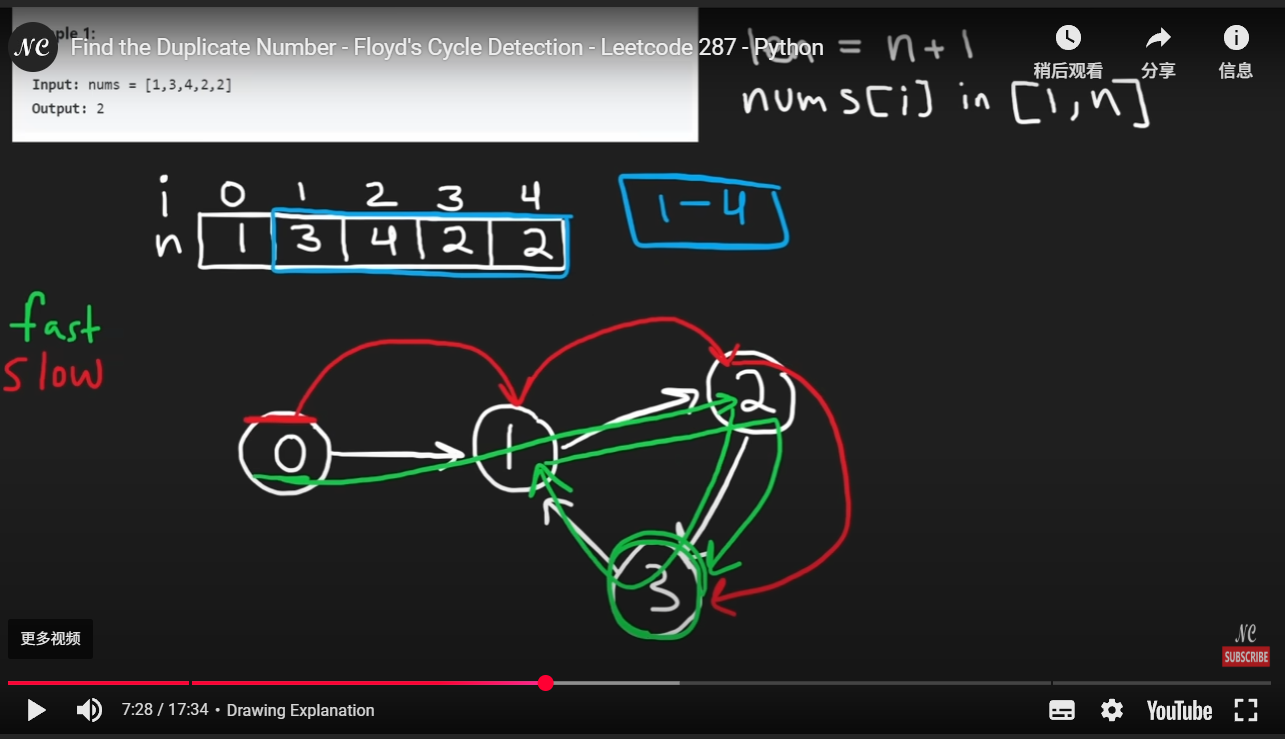 NC
Find the Duplicate Number - Floyd's Cycle Detection - Leetcode 287 - Python
ple 1:
len = n+1
稍后观看
分享
信息
Input: nums = [1,3,4,2,2]
Output: 2
nums[i] in [1,n]
i 0 1 2 3 4
n 1 3 4 2 2
1-4
fast
slow
0
1
2
3
更多视频
NC
SUBSCRIBE
7:28 / 17:34 • Drawing Explanation
YouTube